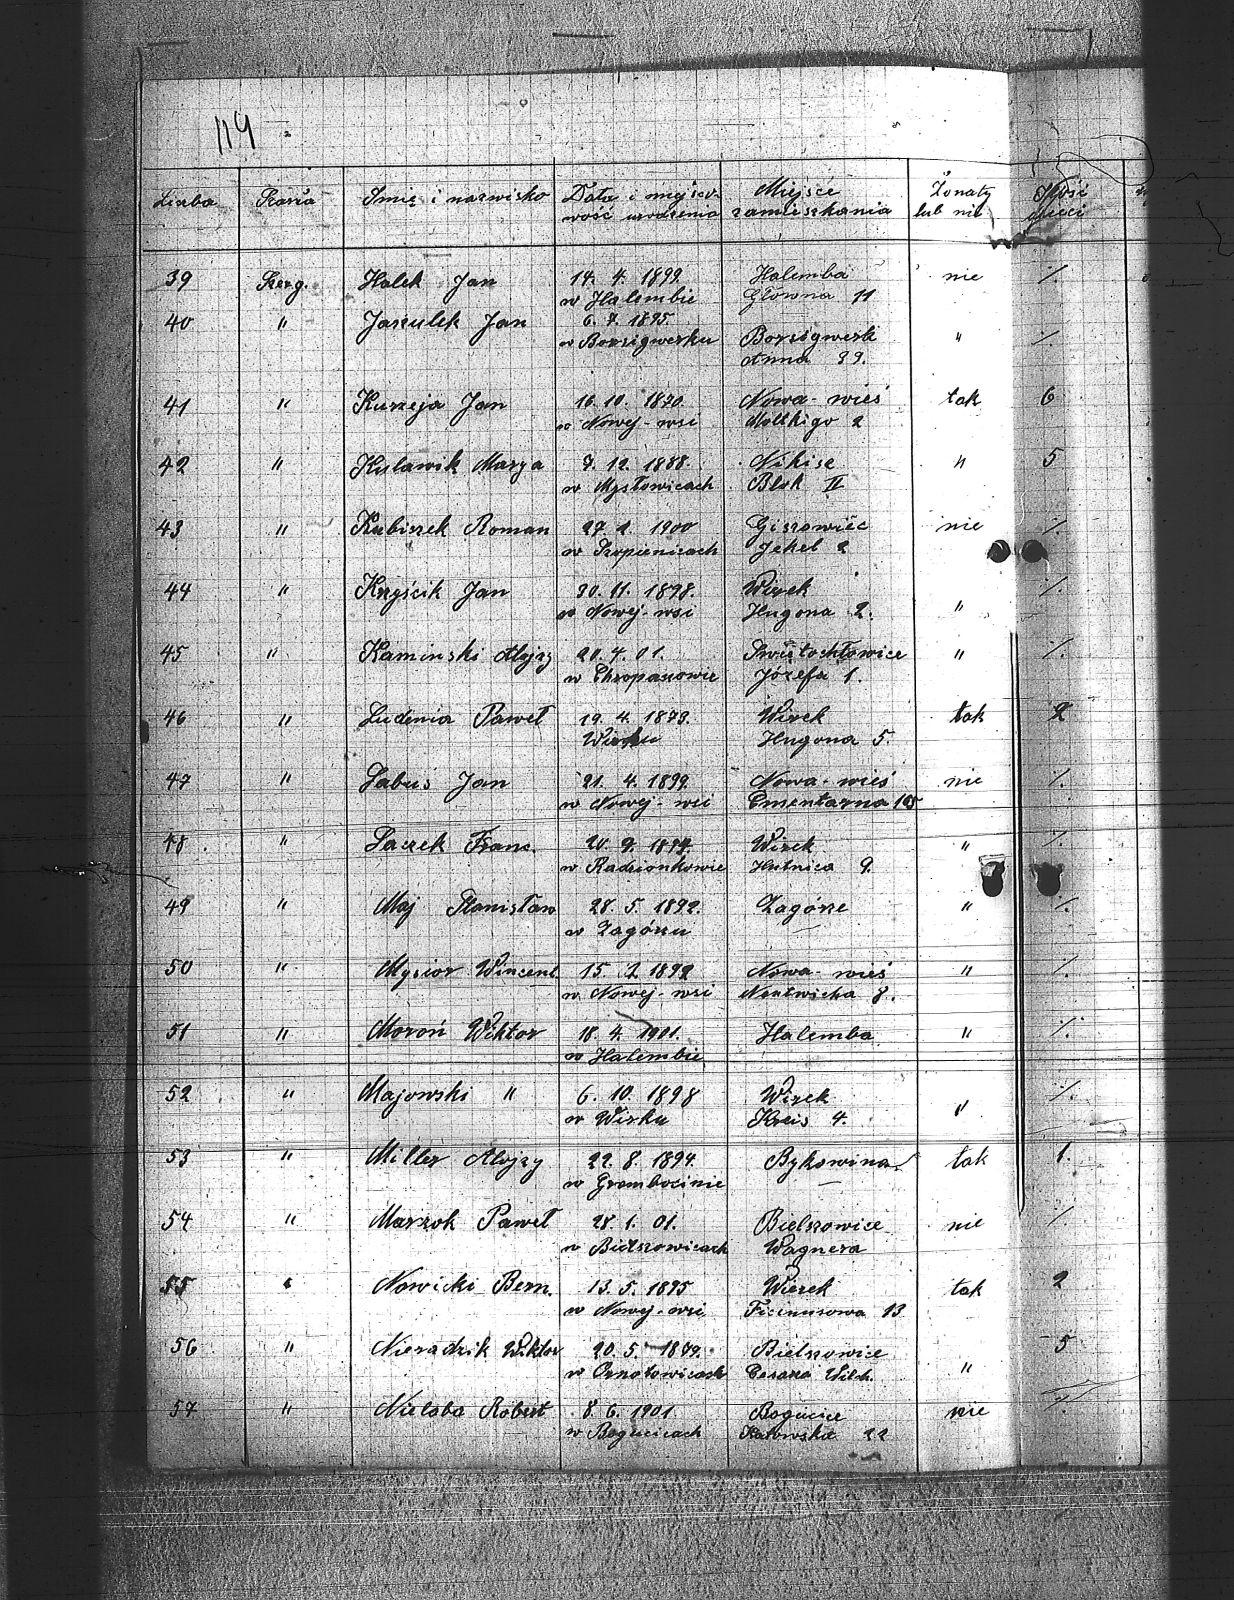 114
Liczba Szarża Imię i nazwisko Data i miejsco- Miejsce Żonaty Ilość
wość urodzenia zamieszkania lub nie dzieci
39 Szerg. Halek Jan 14. 4. 1899. Halemba nie %
w Halembie Główna 11
40 " Jaszulek Jan 6. 7. 1895. Borsigwerk " %
w Borsigwerku Anna 39.
41 " Kurzeja Jan 16. 10. 1870. Nowa-wieś tak 6
w Nowej-wsi 2
42 " Kulawik Marya 7. 12. 1888. Nikisz " 5
w Mysłowicach Blok II
43 " Kubiszek Roman 27. 2. 1900 Giszowiec nie %
w Szopienicach Jekel 2
44 " Krzyścik Jan 30. 11. 1898. Wirek " %
w Nowej-wsi Hugona 2.
45 " Kaminski Alojzy 20. 4. 01. Świętochłowice " %
w Chropaczowie Józefa 1.
46 " Ludenia Paweł 19. 4. 1873. Wirek tak 2
Wirku Hugona 5.
47 " Labuś Jan 21. 4. 1899. Nowa-wieś nie %
w Nowej-wsi Cmentarna 10
48 " Laczek Franc. 20. 9. 1894. Wirek " %
w Radzionkowie Hutnica 9.
49 " Maj Stanisław 28. 5. 1892. Zagórze " %
w Zagórzu
50 " Mysior Wincent 15. 2 1892 Nowa-wieś " %
w Nowej-wsi 8.
51 " Moroń Wiktor 18. 4. 1901. Halemba " %
w Halembie
52 " Majowski " 6. 10. 1898 Wirek " %
w Wirku Kreis 4.
53 " Miller Alojzy 22. 8. 1894. Bykowina tak 1.
w Grambocinie
54 " Marzok Paweł 28. 1. 01. Bielszowice nie %
w Bielszowicach Wagnera
55 " Nowicki Bern. 13. 5. 1895 Wirek tak 2
w Nowej-wsi Ficinusowa 13
56 " Nieradzik Wiktor 20. 5. 1879. Bielszowice " 5
w Ornotowicach Cesarza Wilh.
57 " Nieloba Robert 8. 6. 1901. Bogucice nie %
w Bogucicach Katowska 22